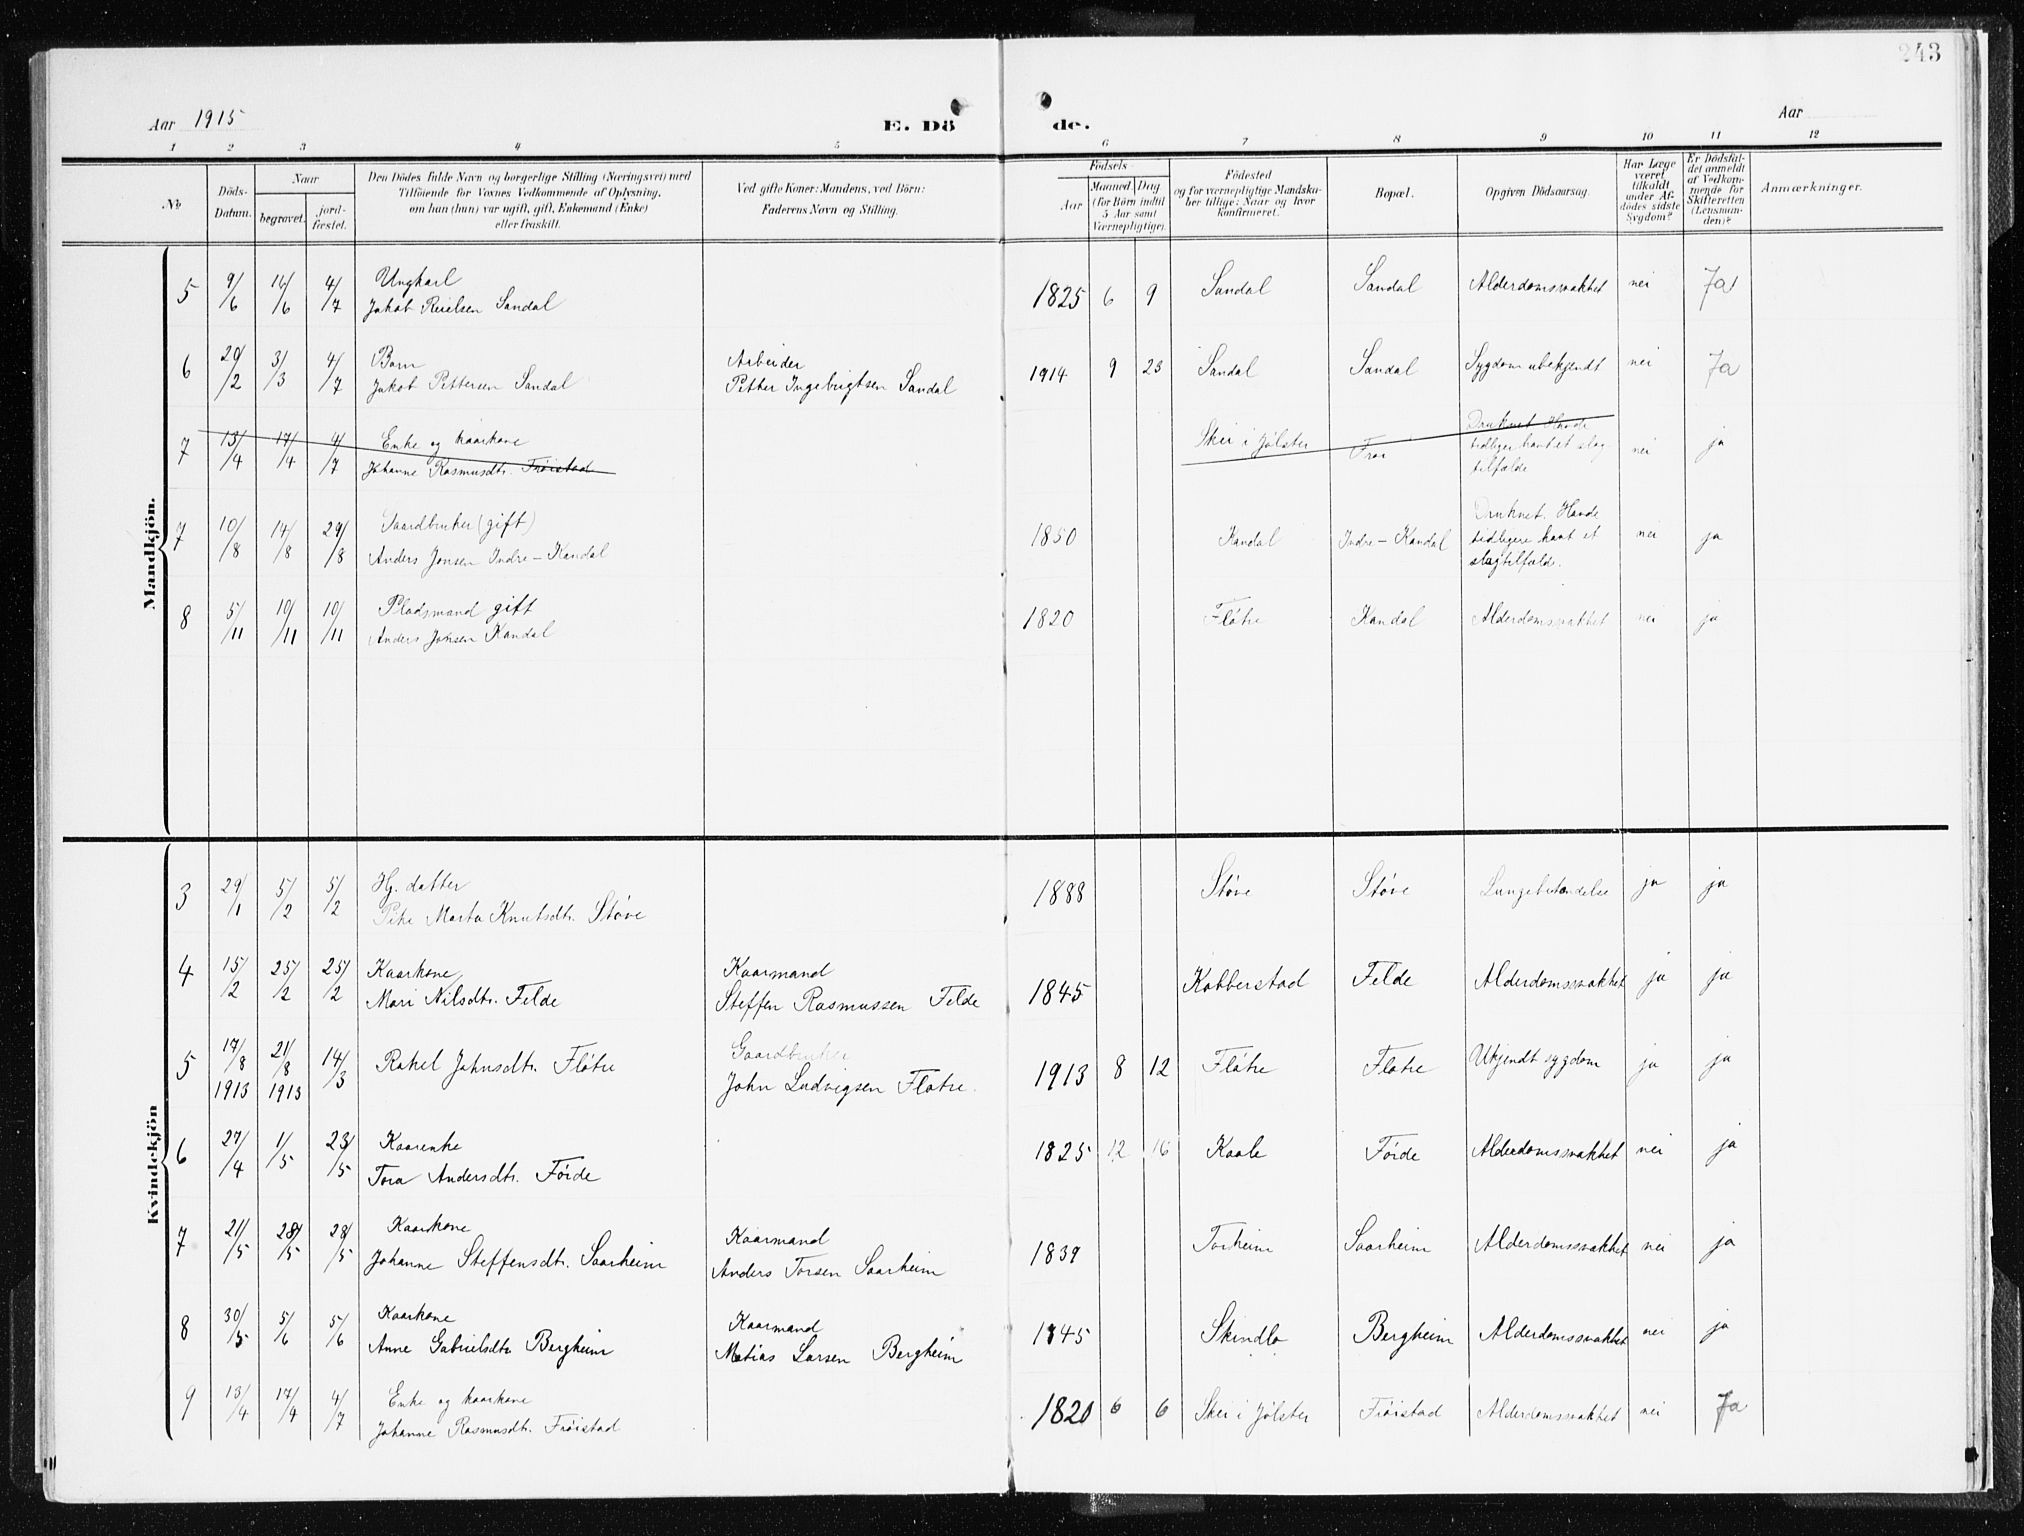 243
Aar 1915
E. Dö
de.
Aar
1 2 3 4 5 6 7 8 9 10 11 12
No
Döds-
Datum.
Naar
begravet.
jord-
fæstet.
Den Dödes fulde Navn og borgerlige Stilling (Næringsvei) med
Tilföiende for Voxnes Vedkommende af Oplysning,
om han (hun) var ugift, gift, Enkemand (Enke)
eller fraskilt.
Ved gifte Koner: Mandens, ved Börn:
Faderens Navn og Stilling.
Födsels
Aar
Maaned
Dag
(for Börn indtil
5 Aar samt
Værnepligtige).
Födested
og for værnepligtige Mandska-
ber tillige: Naar og hvor
konfirmeret.
Bopæl.
Opgiven Dödsaarsag.
Har Læge
været
tilkaldt
under Af-
dödes sidste
Sygdom?
Er Dödsfal-
det anmeldt
af Vedkom-
mende for
Skifteretten
(Lensman-
den)?
Anmærkninger.
Mandkjön.
5 9/6 16/6 4/7 Ungkarl
Jakob Reielsen Sandal
1825 6 9 Sandal Sandal Alderdomssvakhet nei Ja
6 20/2 3/3 4/7 Barn
Jakob Pettersen Sandal
Arbeider
Petter Ingebrigtsen Sandal
1914 9 23 Sandal Sandal Sygdom ubekjendt nei Ja
7 13/4 17/4 4/7 Enke og kaarkone
Johanne Rasmusdtr. Frøistad
Skei i Jølster Frøi
Druknet Havde
tidligere havt et slag
tilfælde
nei ja
7 10/8 14/8 29/8 Gaardbruker (gift)
Anders Jonsen Indre-Kandal
1850 Kandal Indre-Kandal
Druknet. Havde
tidligere havt et
slagtilfæld.
nei ja
8 5/11 10/11 10/11 Pladsmand gift
Anders Johsen Kandal
1820 Fløtre Kandal Alderdomssvakhet nei ja
Kvindekjön
3 29/1 5/2 5/2 Hj. datter
Pike Marta Knutsdtr. Støve
1888 Støve Støve Lungebetændelse ja ja
4 15/2 25/2 25/2 Kaarkone
Mari Nilsdtr. Felde
Kaarmand
Steffen Rasmussen Felde
1845 Kobberstad Felde Alderdomssvakhet ja ja
5 17/8 1913 21/8 1913 14/3 Rakel Johnsdtr. Fløtre
Gaardbruker
John Ludvigsen Fløtre.
1913 8 12 Fløtre Fløtre Ukjendt sygdom ja ja
6 27/4 1/5 23/5 Kaarenke
Tora Andersdtr. Førde
1825 12 16 Kaale Førde Alderdomssvakhet nei ja
7 21/5 28/5 28/5 Kaarkone
Johanne Steffensdtr. Saarheim
Kaarmand
Anders Torsen Saarheim
1839 Torheim Saarheim Alderdomssvakhet nei ja
8 30/5 5/6 5/6 Kaarkone
Anne Gabrielsdtr Bergheim
Kaarmand
Matias Larsen Bergheim
1845 Skindlo Bergheim Alderdomssvakhet nei ja
9 13/4 17/4 4/7 Enke og kaarkone
Johanne Rasmusdtr. Frøistad
1820 6 6 Skei i Jølster Frøistad Alderdomssvakhet nei Ja